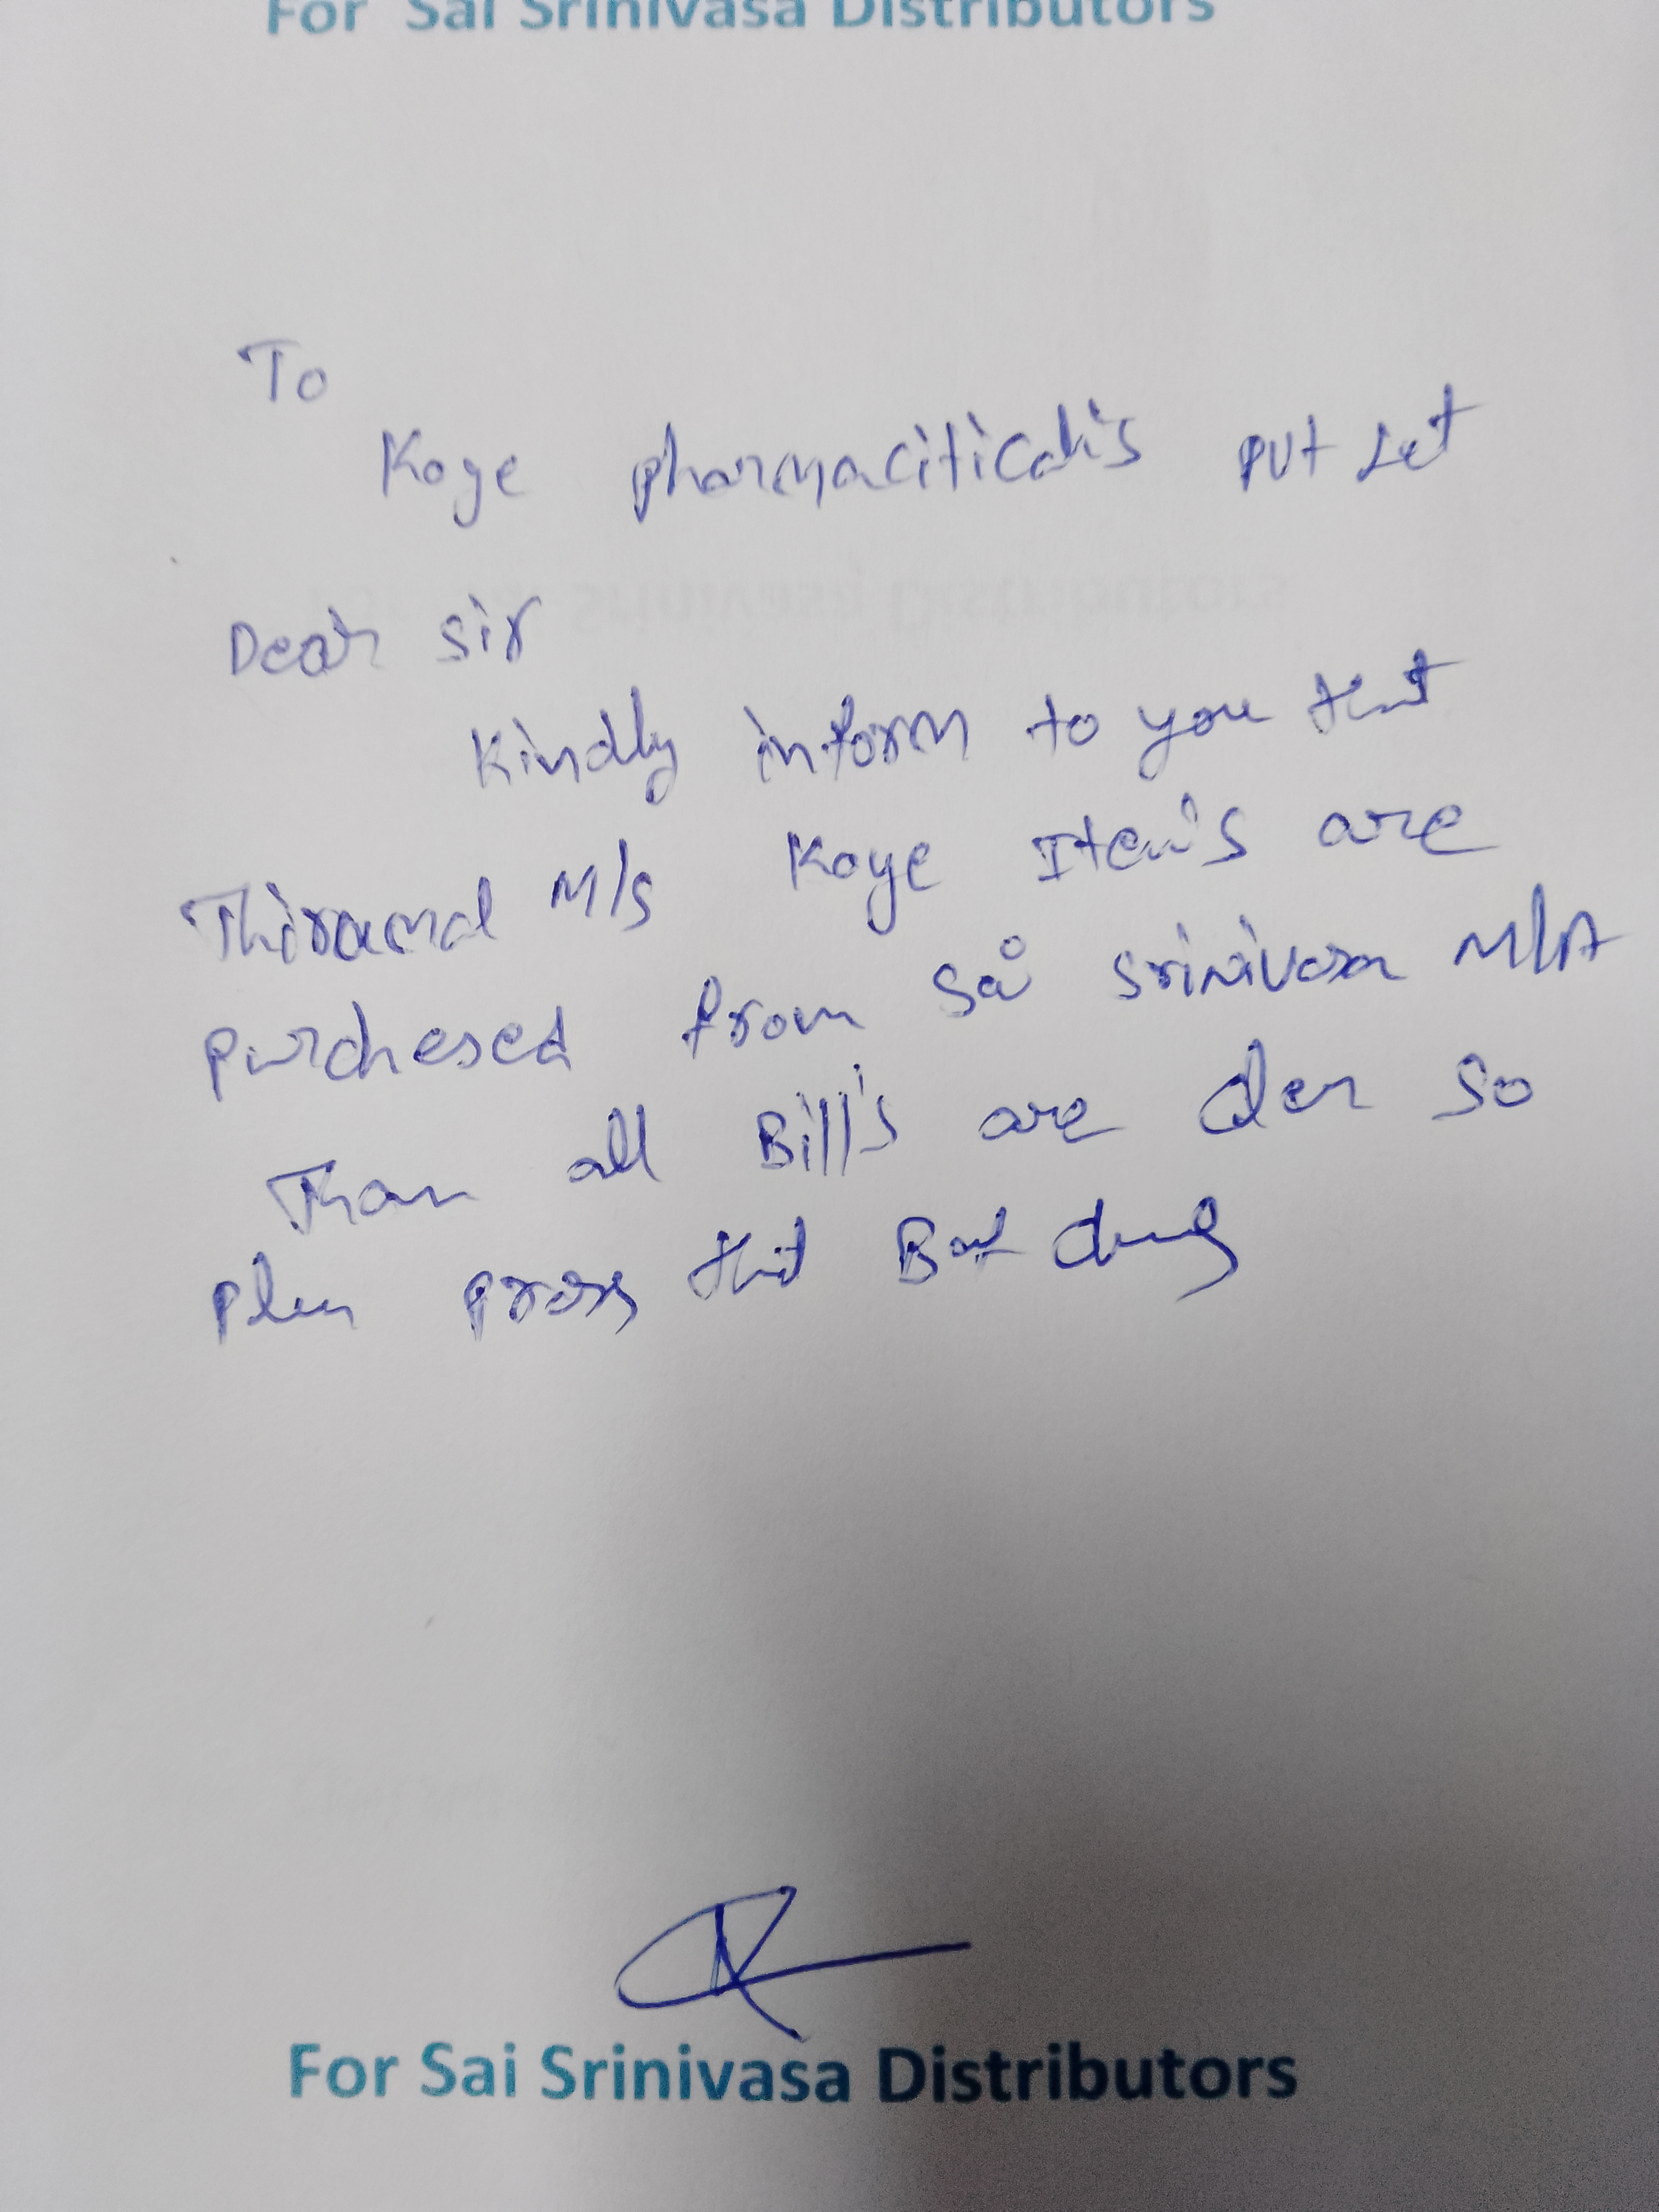 For Sai Srinivasa Distributors
To
Koye pharmaciticalis PVT Let
Dear sir
Kindly inform to you that
M/s Koye Item's are
purchesed from Sai srinivasa
Than all Bill's are so
that
For Sai Srinivasa Distributors